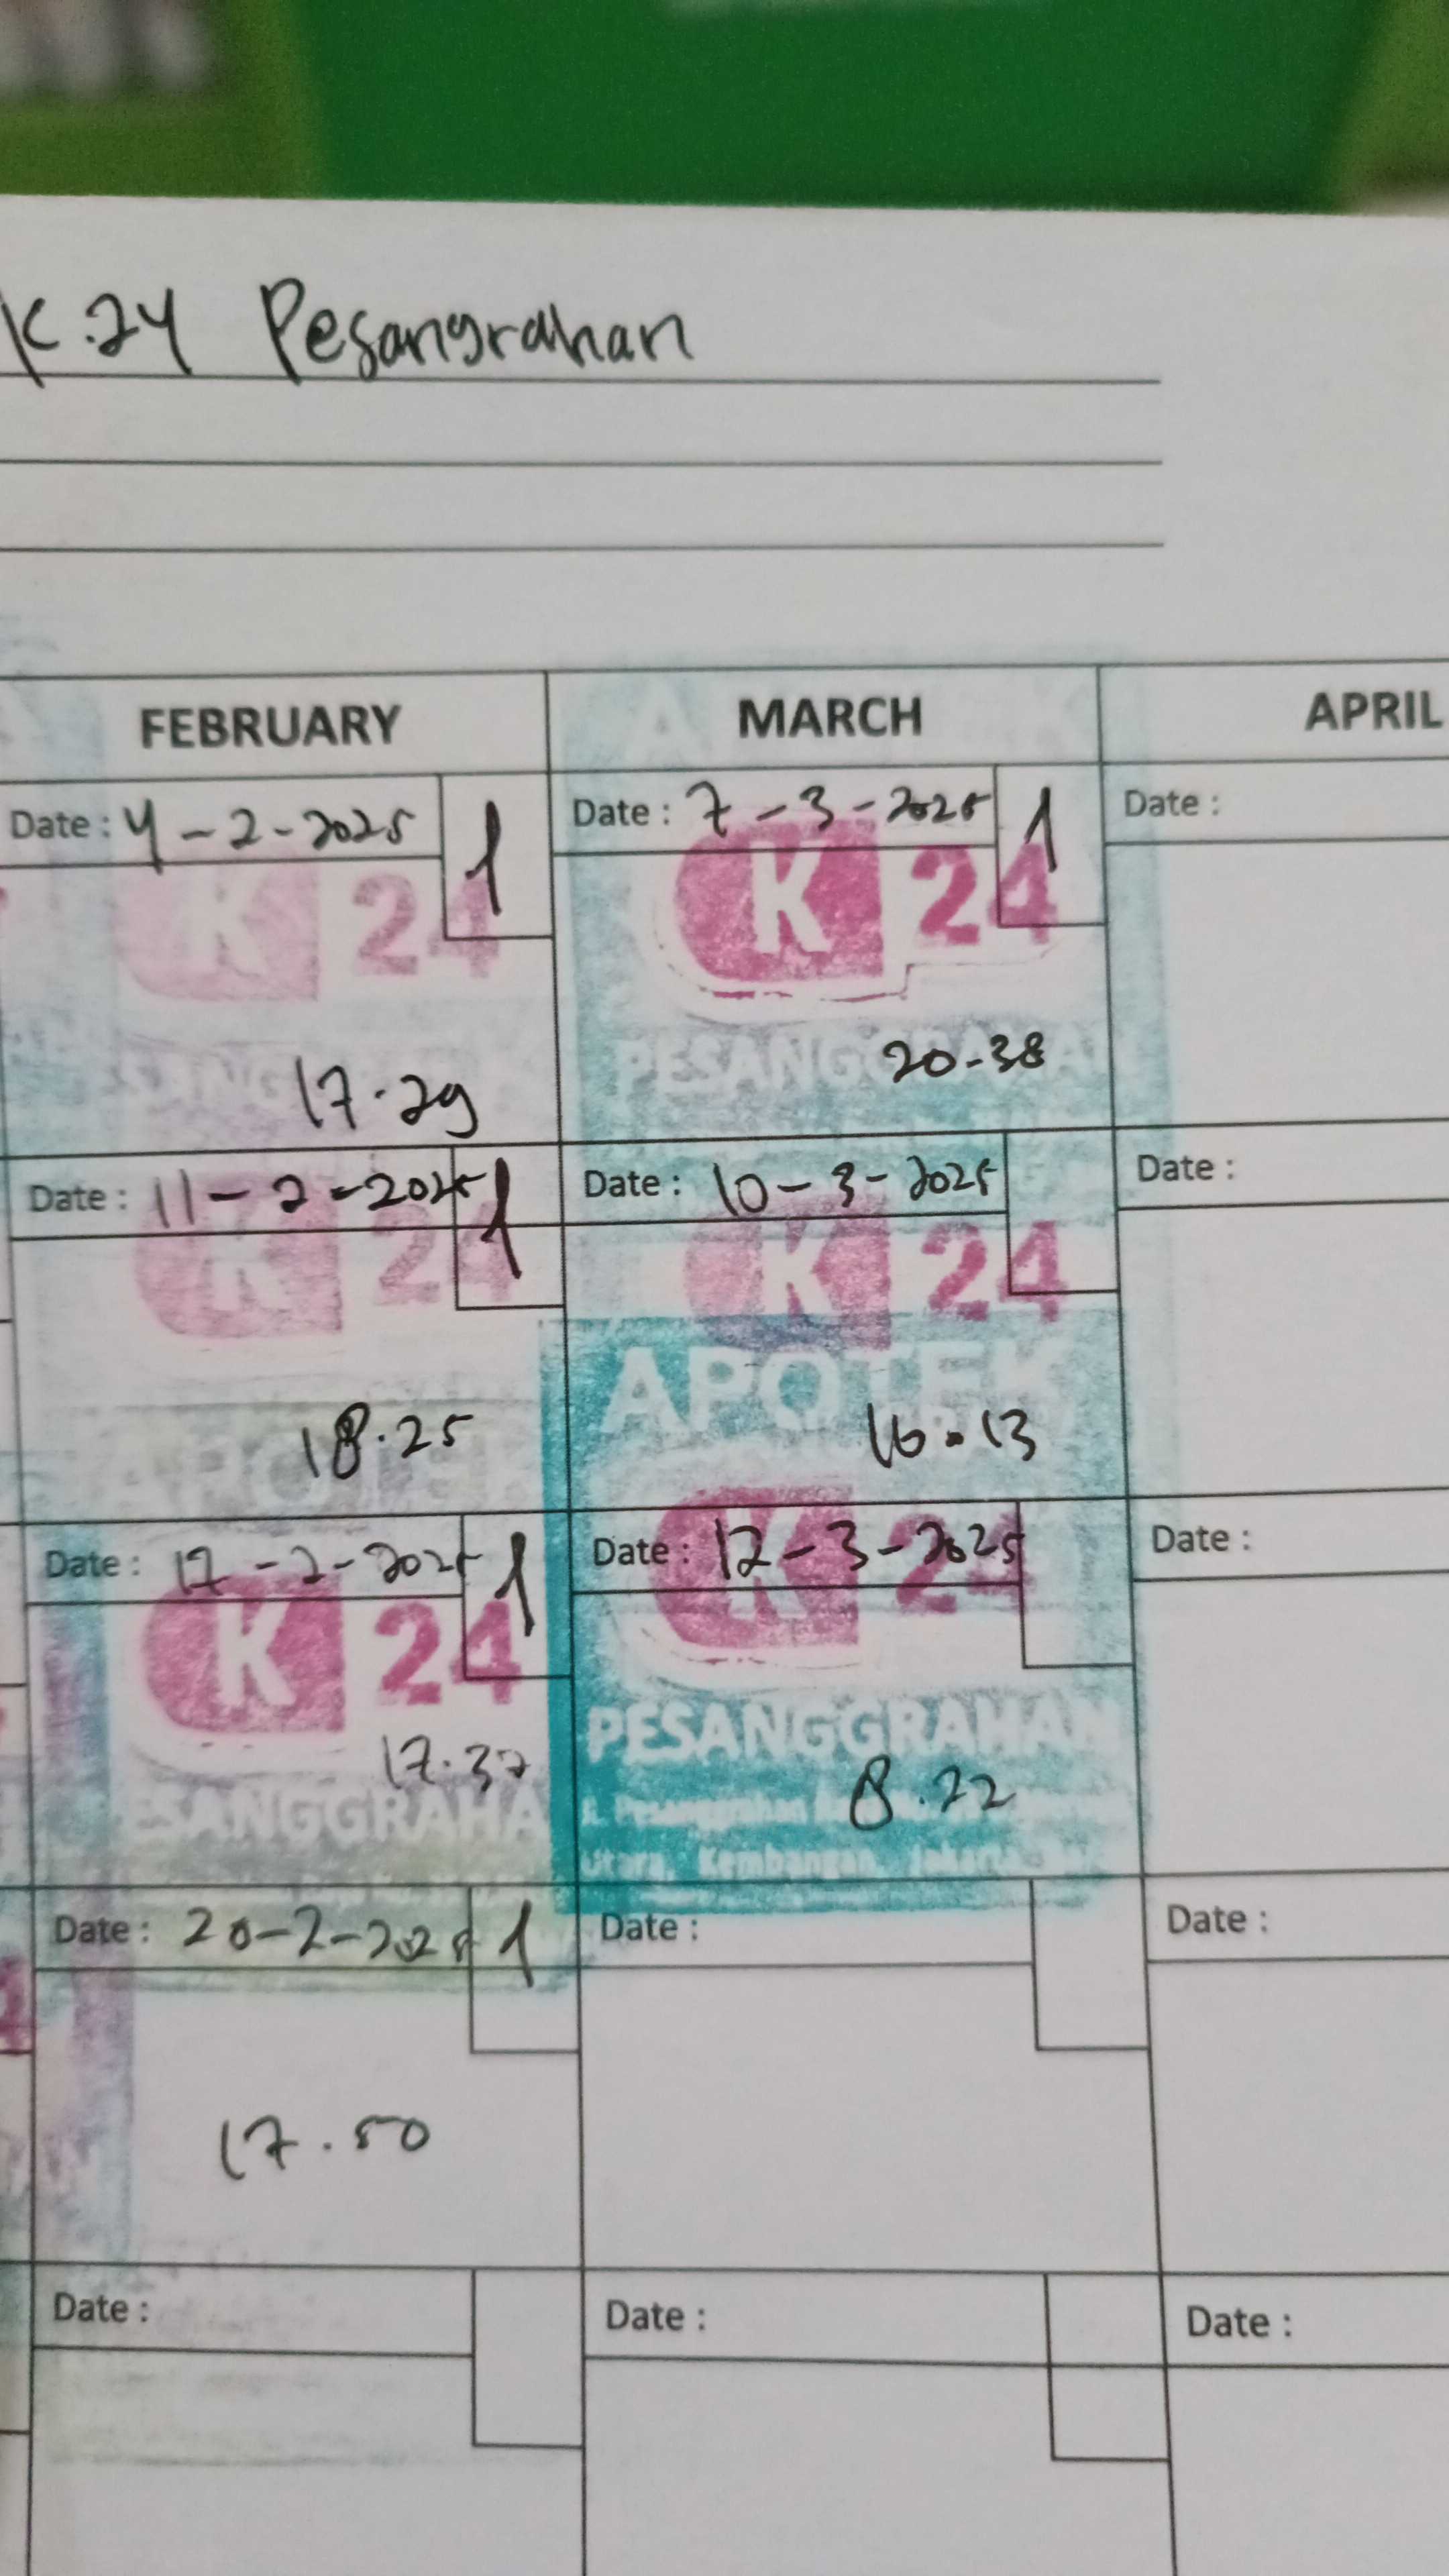 K.24 Pesangrahan
FEBRUARY MARCH APRIL
Date : 4-2-2025 1 Date : 7-3-2025 1 Date :
K 24 K 24
PESANGGRAHAN
17.29 20-38
Date : 11-2-2025 1 Date : 10-3-2025 Date :
K 24 K 24
APOTEK
18.25 16.13
APOTEK
Date : 17-2-2025 1 Date : 12-3-2025 Date :
K 24 K 24
17.37 PESANGGRAHAN
ESANGGRAHA 8.22
Utara, Kembangan, Jakarta
Date : 20-2-2025 1 Date : Date :
17.50
Date : Date : Date :